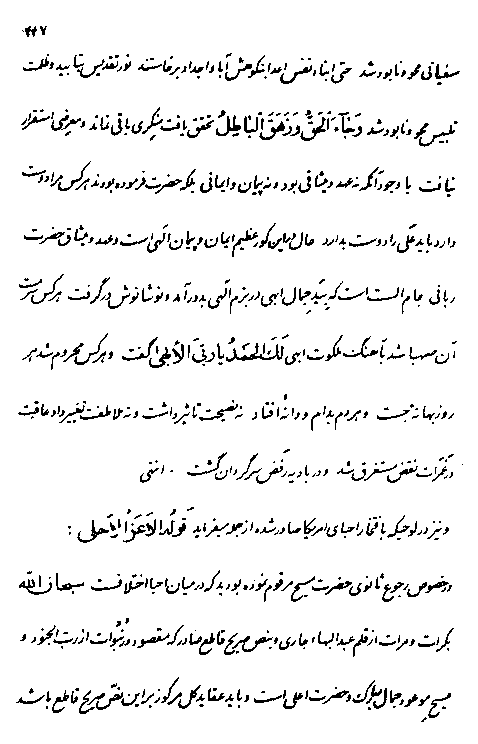 ۴۴۷
سفیانی محو و نابود شد حتی ابناء نفس اعدا بنکوهش آبا و اجداد برخاستند نور تقدیس بتابید و ظلمت
تلبیس محو و نابود شد وَجٰاءَ الحَقُّ وَزَهَقَ الباطِلُ تحقق یافت منکری باقی نماند و معرضی استقرار
نیافت با وجود آنکه نه عهد و میثاقی بود و نه پیمان و ایمانی بلکه حضرت فرموده بودند هر کس مرا دوست
دارد باید علی را دوست بدارد حال در این کور عظیم ایمان و پیمان الهی است و عهد و میثاق حضرت
ربانی جام الست است که بید جمال ابهی در بزم الهی بدور آمد و نوشانوش در گرفت هر کس سرمست
آن صهبا شد بآهنگ ملکوت ابهی لَکَ الحَمدُ یا ربّیَ الاَبهیٰ گفت و هر کس محروم شد هر
روز بهانه جست و هر دم بدام و دانهٔ افتاد نه نصیحت تاثیر داشت و نه ملاطفت تغییر داد عاقبت
در غمرات نقض مستغرق شد و در بادیهٔ رفض سرگردان گشت . انتهی
و نیز در لوحیکه بافتخار احبای امریکا صادر شده از جمله میفرماید قَولُه الاَعَزُّ الاَحلی :
در خصوص رجوع ثانوی حضرت مسیح مرقوم نموده بودید که در میان احبا اختلافست سبحان اللّه
بکرات و مرات از قلم عبدالبهاء جاری و بنص صریح قاطع صادر که مقصود در نبوّات از رب الجنود و
مسیح موعود جمال مبارک و حضرت اعلی است و باید عقاید کل مرکوز بر این نصّ صریح قاطع باشد